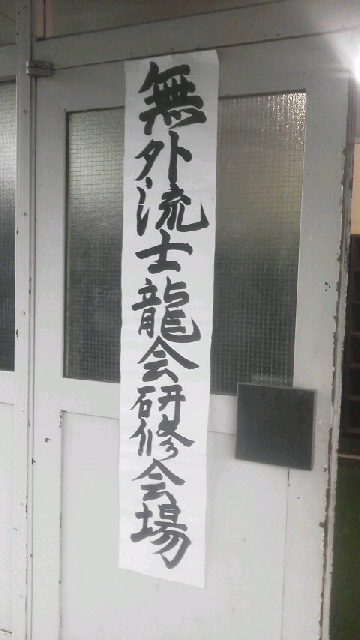 無外流士龍会研修会場